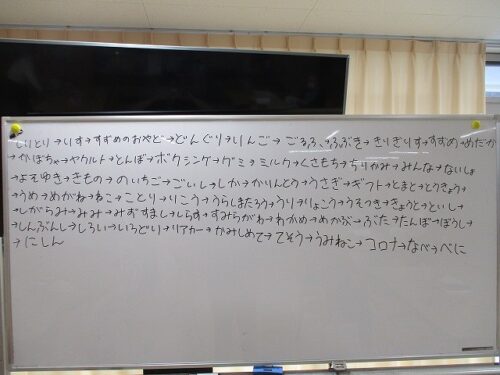 しりとり→りす→すずめのおやど→どんぐり→りんご→ごろごろ →きりぎりす→すずめ→めだか
→かぼちゃ→ヤクルト→とんぼ→ボクシング→グミ→ミルク→くさもち→ちりがみ→みんな→ないしょ
→よそゆき→きもの→のいちご→ごいし→しか→かりんとう→うさぎ→ギフト→とまと→とうきょう→
→うめ→めがね→ねこ→ことり→りこう→うらしまたろう→うり→りょこう→うそつき→きょうと→といし→
→しがらみ→みみ→みずすまし→しらす→すみらがわ→わかめ→めかぶ→ぶた→たんぼ→ぼうし→
→しんぶんし→しろい→いろどり→リアカー→かみしめて→てそう→うみねこ→コロナ→なべ→べに
→にしん